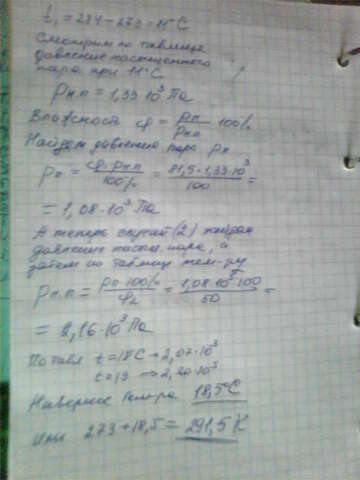 t₁ = 284 - 273 = 11°C
Смотрим по таблице
давление насыщенного
пара при 11°C
Pн.п = 1,33·10³ Па
Влажность φ = Pп/Pн.п · 100%
Найдем давление пара Pп
Pп = φ·Pн.п/100% = 81,5·1,33·10³/100 =
= 1,08·10³ Па
А теперь случай (2) найдем
давление насыщ. пара, а
затем по таблице тем-ру
Pн.п = Pп·100%/φ₂ = 1,08·10³·100/50 =
= 2,16·10³ Па
По табл t = 18°C → 2,07·10³
t = 19 → 2,20·10³
Наверное 18,5°C
Или 273 + 18,5 = 291,5 K